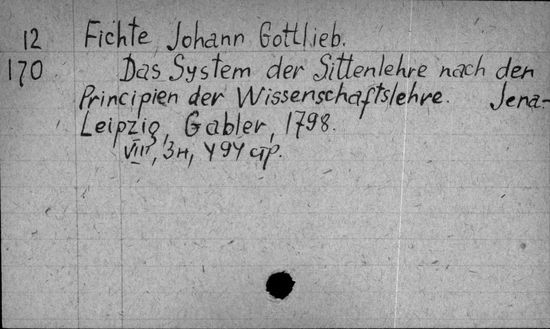 12 Fichte, Johann Gottlieb.
170 Das System der Sittenlehre nach den
Principien der Wissenschaftslehre. Jena-
Leipzig, Gabler, 1798.
VIII, 3н, 494 стр.